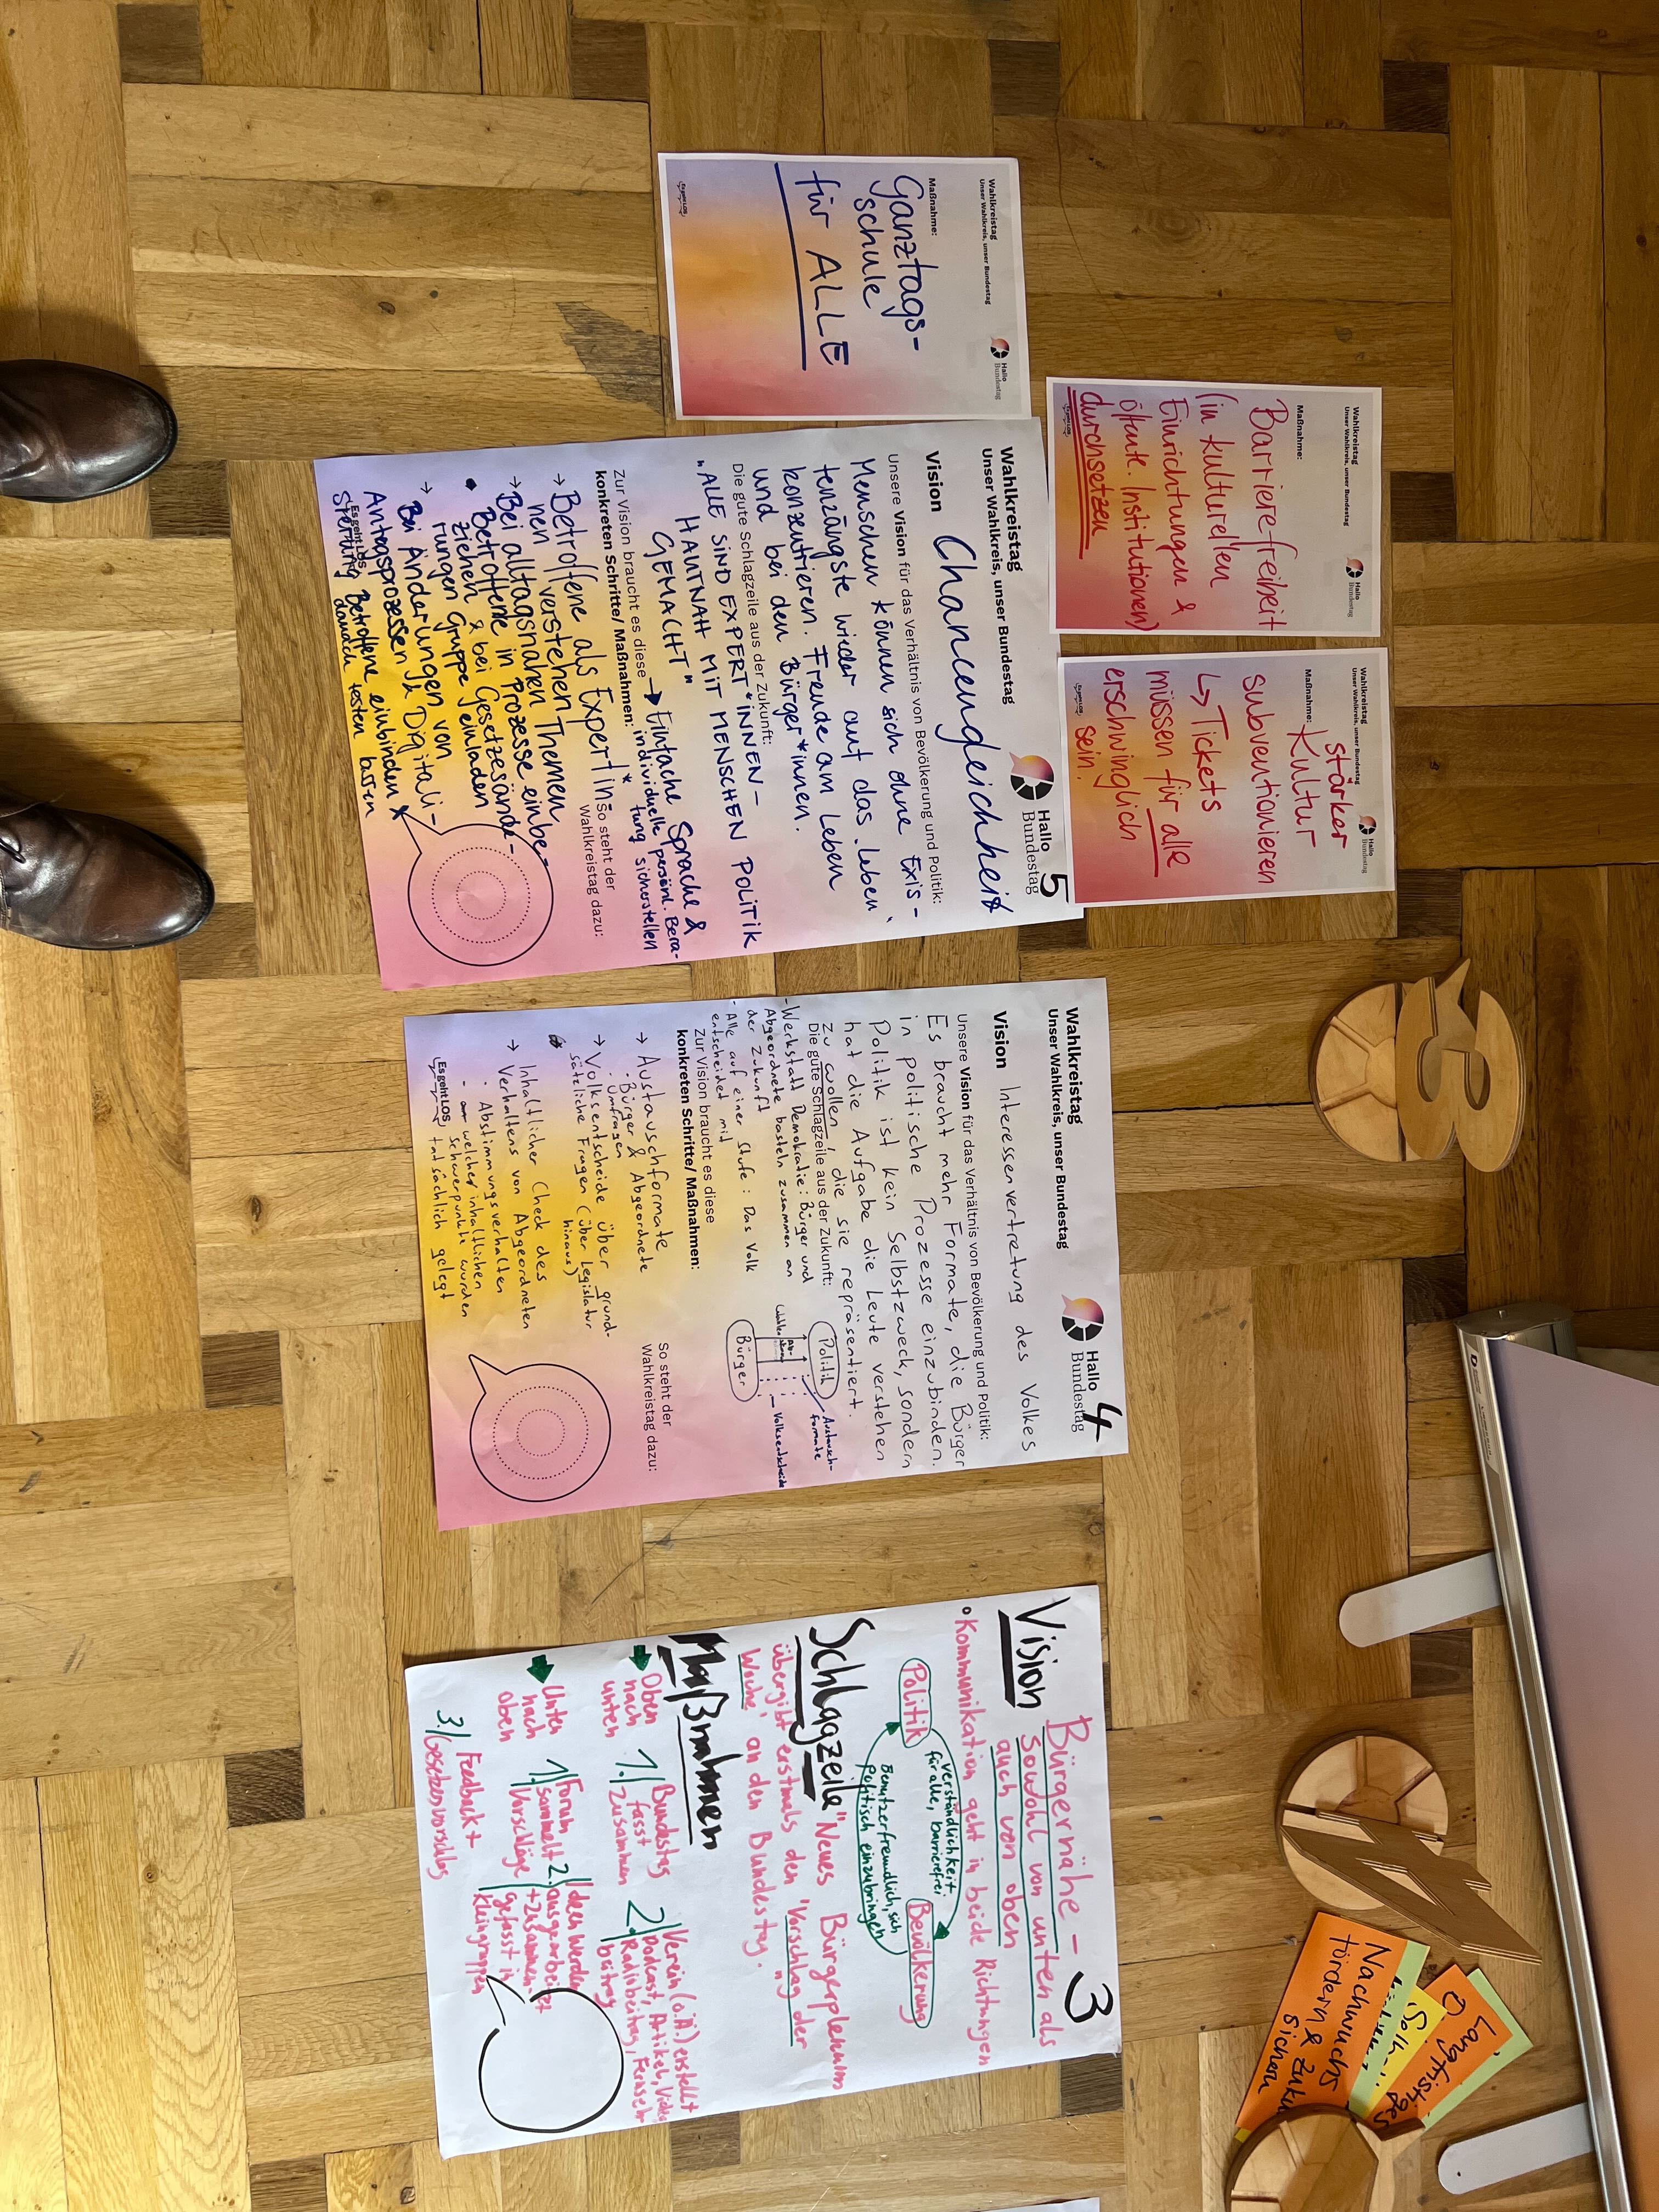 Wahlkreistag
Unser Wahlkreis, unser Bundestag
Hallo
Bundestag
Maßnahme:
Ganztags-
schule
für ALLE
Es geht LOS
Wahlkreistag
Unser Wahlkreis, unser Bundestag
Hallo
Bundestag
Maßnahme:
Barrierefreiheit
(in kulturellen
Einrichtungen &
öffentl. Institutionen)
durchsetzen
Es geht LOS
Wahlkreistag
Unser Wahlkreis, unser Bundestag
Hallo
Bundestag
Maßnahme:
stärker
Kultur
subventionieren
↳ Tickets
müssen für alle
erschwinglich
sein.
Es geht LOS
Wahlkreistag
Unser Wahlkreis, unser Bundestag
Hallo
Bundestag
5
Vision Chancengleichheit
Unsere Vision für das Verhältnis von Bevölkerung und Politik:
Menschen können sich ohne Exis-
tenzängste wieder auf das Leben
konzentrieren. Freude am Leben
und bei den Bürger*innen.
Die gute Schlagzeile aus der Zukunft:
"ALLE SIND EXPERT*INNEN –
HAUTNAH MIT MENSCHEN POLITIK
GEMACHT"
Zur Vision braucht es diese
konkreten Schritte/ Maßnahmen:
→ Einfache Sprache &
individuelle persönl. Bera-
tung sicherstellen
→ Betroffene als Expert*in-
nen verstehen
→ Bei alltagsnahen Themen
Betroffene in Prozesse einbe-
ziehen & bei Gesetzesände-
rungen Gruppe einladen
→ Bei Änderungen von
Antragsprozessen & Digitali-
sierung Betroffene einbinden &
danach testen lassen
So steht der
Wahlkreistag dazu:
Es geht LOS
Wahlkreistag
Unser Wahlkreis, unser Bundestag
Hallo
Bundestag
4
Vision Interessenvertretung des Volkes
Unsere Vision für das Verhältnis von Bevölkerung und Politik:
Es braucht mehr Formate, die Bürger
in politische Prozesse einzubinden.
Politik ist kein Selbstzweck, sondern
hat die Aufgabe die Leute verstehen
zu wollen, die sie repräsentiert.
Die gute Schlagzeile aus der Zukunft:
- Werkstatt Demokratie: Bürger und
Abgeordnete basteln zusammen an
der Zukunft
- Alle auf einer Stufe: Das Volk
entscheidet mit
Politik
Austausch-
formate
Wahlen
Volksentscheide
Bürger
Zur Vision braucht es diese
konkreten Schritte/ Maßnahmen:
→ Austauschformate
- Bürger & Abgeordnete
- Umfragen
→ Volksentscheide über grund-
sätzliche Fragen (über Legislatur
hinaus)
→ Inhaltlicher Check des
Verhaltens von Abgeordneten
- Abstimmungsverhalten
- welcher inhaltlichen
Schwerpunkte wurden
tatsächlich gelegt
So steht der
Wahlkreistag dazu:
Es geht LOS
3
Vision Bürgernähe –
sowohl von unten als
auch von oben
° Kommunikation geht in beide Richtungen
Politik
verständlich
für alle, barrierefrei
Bevölkerung
Benutzerfreundlich, sich
politisch einzubringen
Schlagzeile "Neues Bürgerplenum
übergibt erstmals den "Vorschlag der
Woche" an den Bundestag."
Maßnahmen
Oben
nach
unten
1./ Bundestag
fasst
zusammen
2./ Verein (o.Ä.) erstellt
Podcast, Artikel, Video,
Radiobeitrag, Fernseh
beitrag
Unten
nach
oben
1./ Forum
sammelt
Vorschläge
2./ Ideen werden
ausgearbeitet
+ zusammen-
gefasst in
Kleingruppen
3./ Feedback +
Gesetzesvorschlag
3
4
Langfristiges
Nachwuchs
fördern & Zukun
sichern